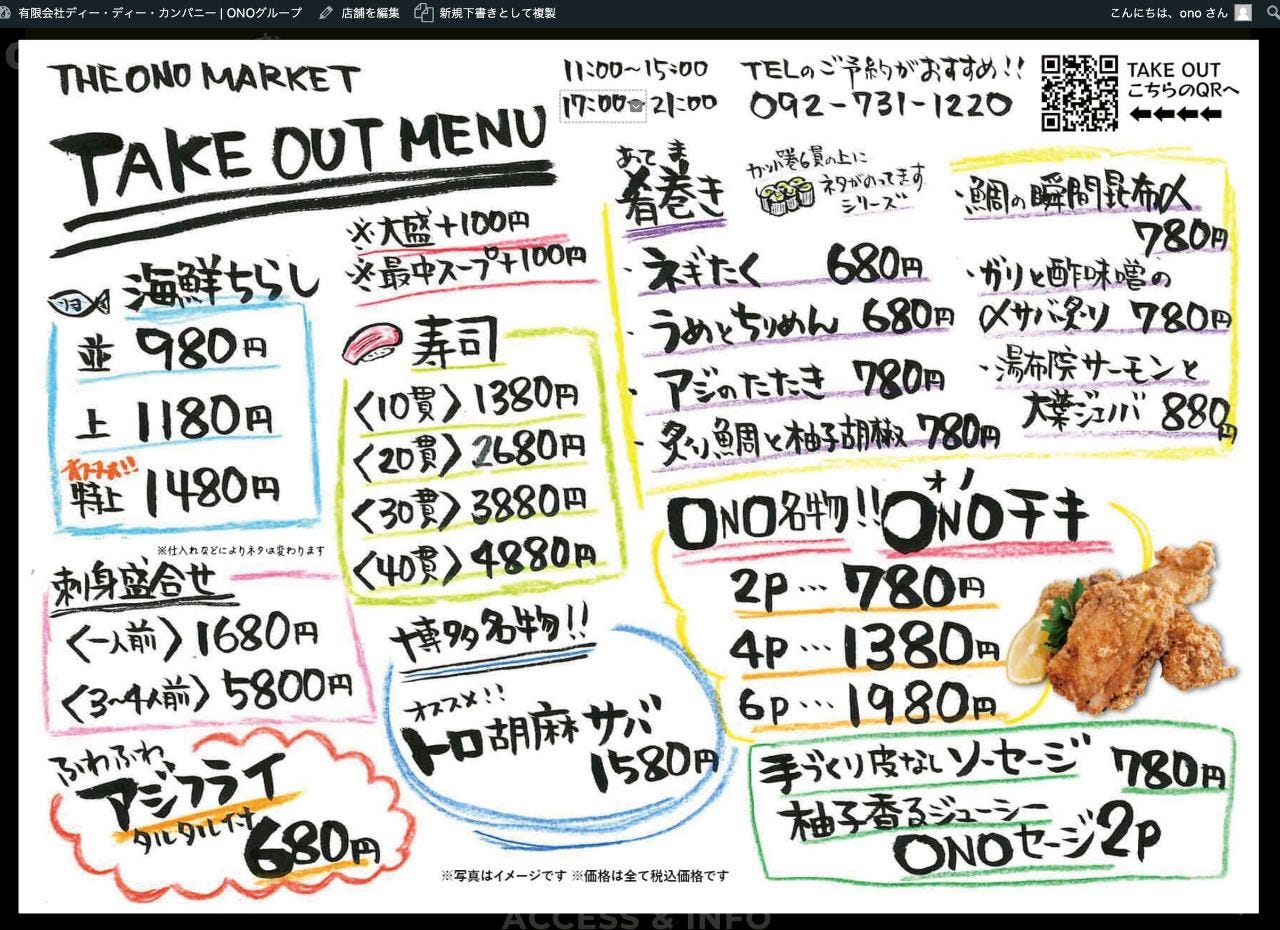 有限会社ディー・ディー・カンパニー | ONOグループ 店舗を編集 新規下書きとして複製 こんにちは、ono さん
THE ONO MARKET
TAKE OUT MENU
11:00〜15:00
17:00 21:00
TELのご予約がおすすめ!!
092-731-1220
TAKE OUT
こちらのQRへ
※大盛+100円
※最中スープ+100円
海鮮ちらし
並 980円
上 1180円
オススメ!!
特上 1480円
※仕入れなどによりネタは変わります
寿司
〈10貫〉1380円
〈20貫〉2680円
〈30貫〉3880円
〈40貫〉4880円
刺身盛合せ
〈一人前〉1680円
〈3〜4人前〉5800円
ふわふわ
アジフライ
タルタル付
680円
博多名物!!
オススメ!!
トロ胡麻サバ
1580円
あてま
肴巻き
カッパ巻6貫の上に
ネタがのってきます
シリーズ
・ネギたく 680円
・うめとちりめん 680円
・アジのたたき 780円
・炙り鯛と柚子胡椒 780円
・鯛の瞬間昆布〆
780円
・ガリと酢味噌の
〆サバ炙り 780円
・湯布院サーモンと
大葉ジェノバ 880円
ONO名物!!
オノ
ONOチキ
2P… 780円
4P… 1380円
6P… 1980円
手づくり皮なしソーセージ 780円
柚子香るジューシー
ONOセージ2P
※写真はイメージです ※価格は全て税込価格です
ACCESS & INFO